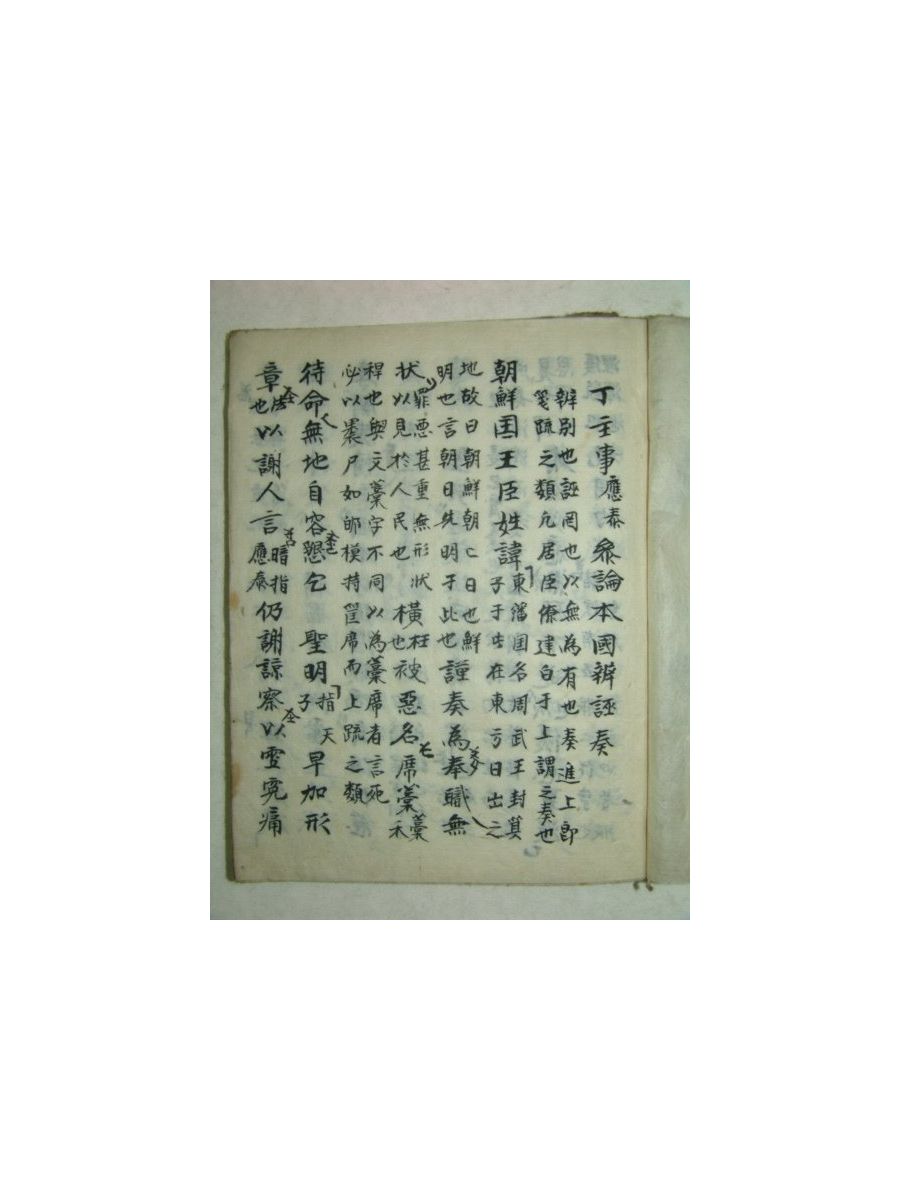 丁主事應泰參論本國辨誣奏
辨別也誣罔也以無為有也奏進上郎
箋疏之類凡居臣僚建白于上謂之奏也
朝鮮国王臣姓諱東藩国名周武王封箕子于此在東方日出之
地故曰朝鮮朝亡日也鮮
明也言朝日先明于此也謹奏為奉職無
状罪悪甚重無形状以見於人民也橫枉也被惡名席藁藁禾
稈也與文藁字不同以為藁席者言死
必以裹尸如郎模持筐席而上疏之類
待命無地自容懇乞聖明指天子早加形
章法也以謝人言暗指應泰仍謝諒察以雪冤痛